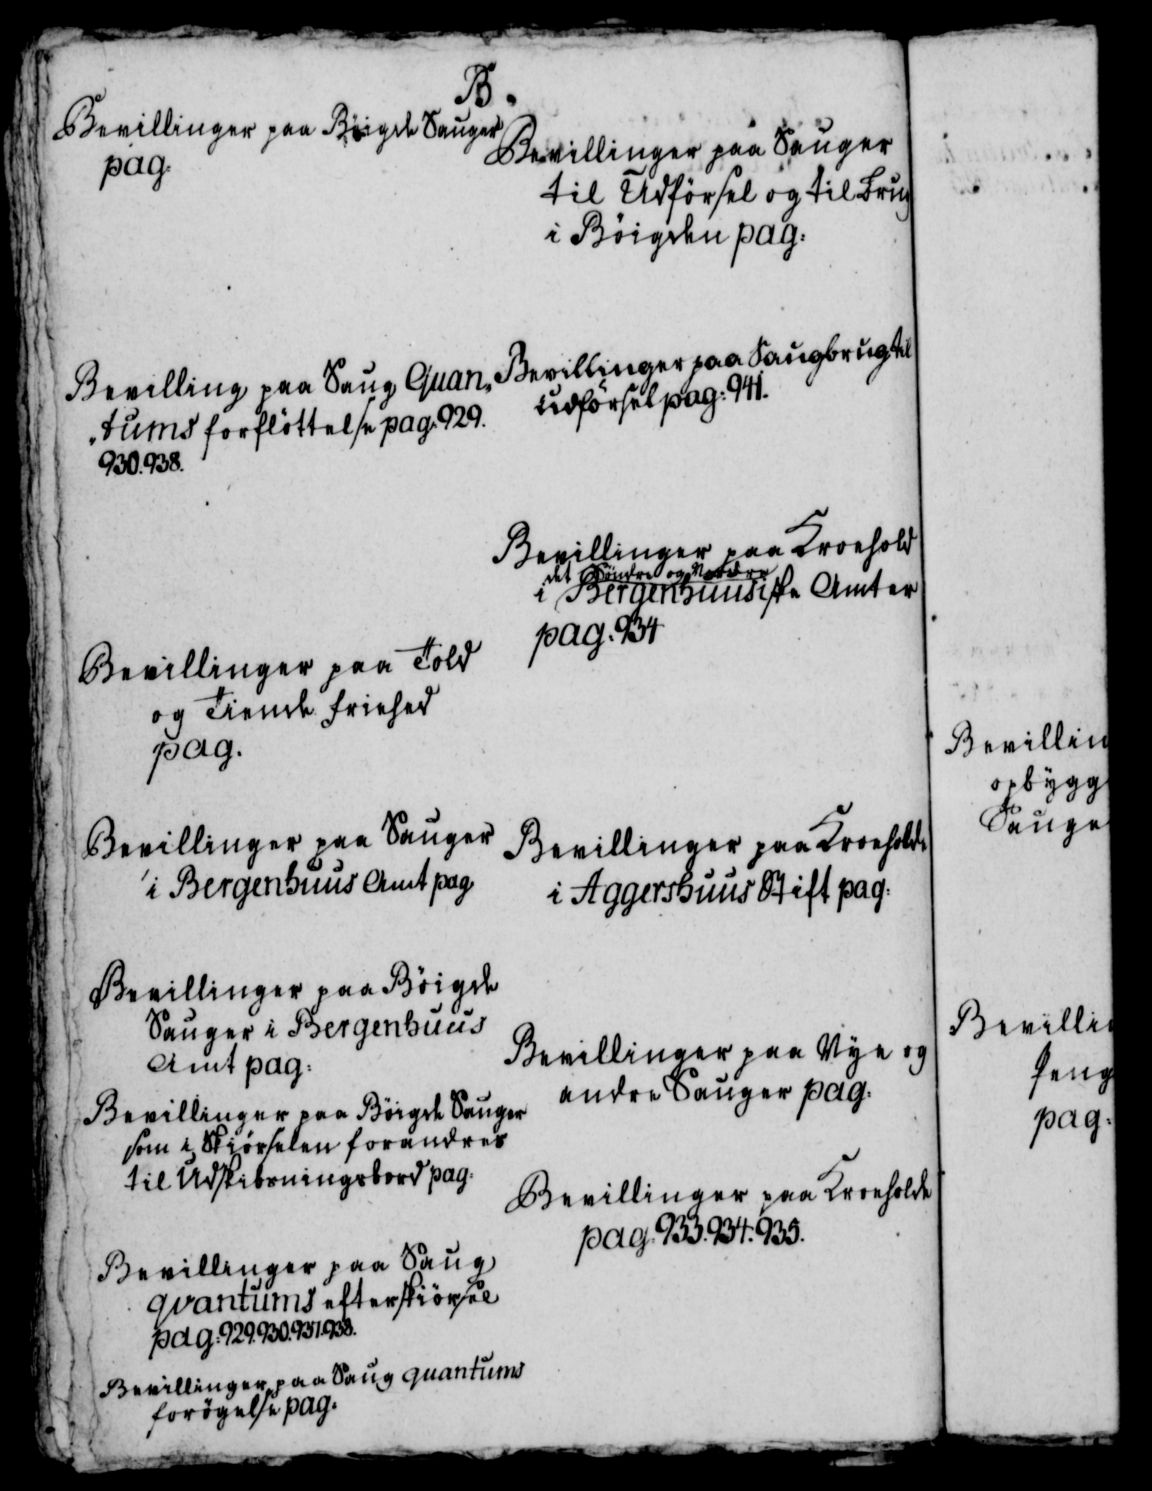 B.
Bevillinger paa Böigde Sauger
pag.
Bevilling paa Saug Quan,
,tums forflöttelse pag. 929.
930. 938.
Bevillinger paa Told
og Tiende friehed
pag.
Bevillinger paa Sauger
i Bergenhuus Amt pag
Bevillinger paa Böigde
Sauger i Bergenhuus
Amt pag:
Bevillinger paa Böigde Sauger
som i Skiörselen forandres
til Udskibningsbord pag:
Bevillinger paa Saug
qvantums efterskiörsel
pag: 929. 930. 931. 938.
Bevillinger paa Saug quantums
forögelse pag:
Bevillinger paa Sauger
til Udförsel og til Brug
i Böigden pag:
Bevillinger paa Saugbrug til
udförsel pag: 941.
Bevillinger paa Kroehold
det Söndre og Nordre
i Bergenhuusiske Amter
pag. 934
Bevillinger paa Kroeholde
i Aggershuus Stift pag:
Bevillinger paa Nye og
andre Sauger pag:
Bevillinger paa Kroeholde
pag. 933. 934. 935.
Bevillin
opbygg
Sauge
Bevillin
Peng
pag: